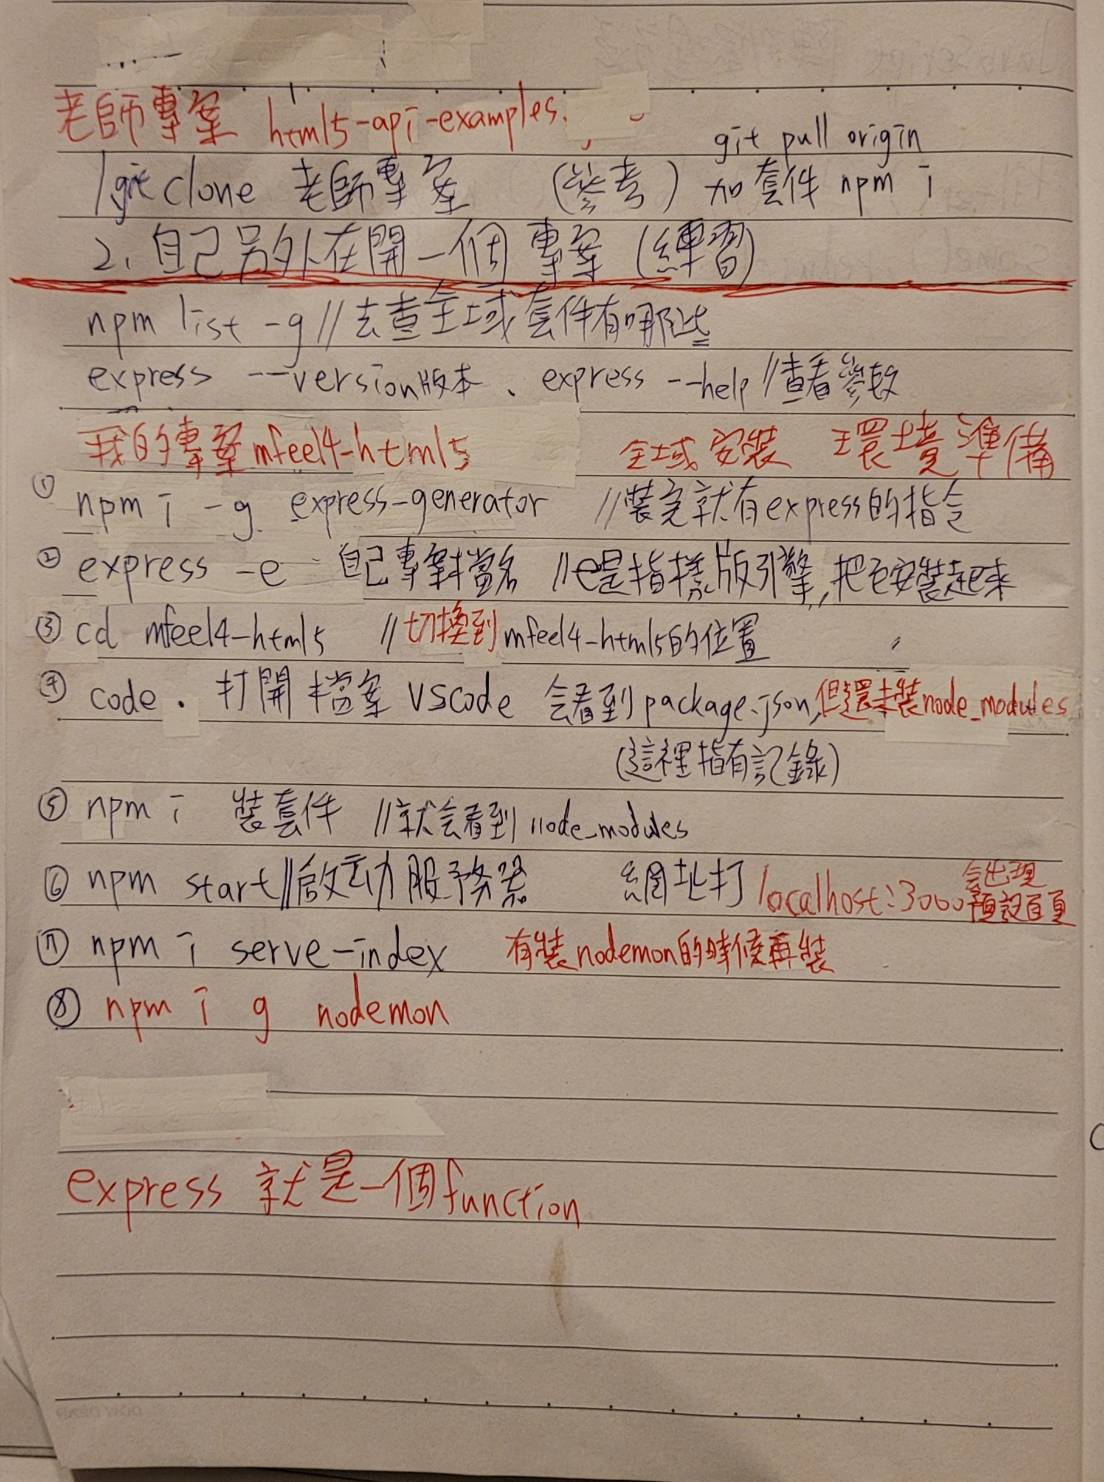 老師專案 html5-api-examples.
git pull origin
1git clone 老師專案 (參考) 加套件 npm i
2. 自己另外在開一個專案 (練習)
npm list -g //去查全域套件有哪些
express --version版本、express --help //查看參數
我的專案mfee14-html5 全域安裝 環境準備
① npm i -g express-generator //裝完就有express的指令
② express -e 自己專案檔名 //e是指樣版引擎,把它安裝起來
③ cd mfee14-html5 //切換到mfee14-html5的位置
④ code . 打開檔案 vscode 会看到package.json,但還未裝node_modules
(這裡指有記錄)
⑤ npm i 裝套件 //就会看到node_modules
⑥ npm start//啟动服务器 網址打localhost:3000会出現預設首頁
⑦ npm i serve-index 有裝nodemon的時候再裝
⑧ npm i g nodemon
express 就是一個function